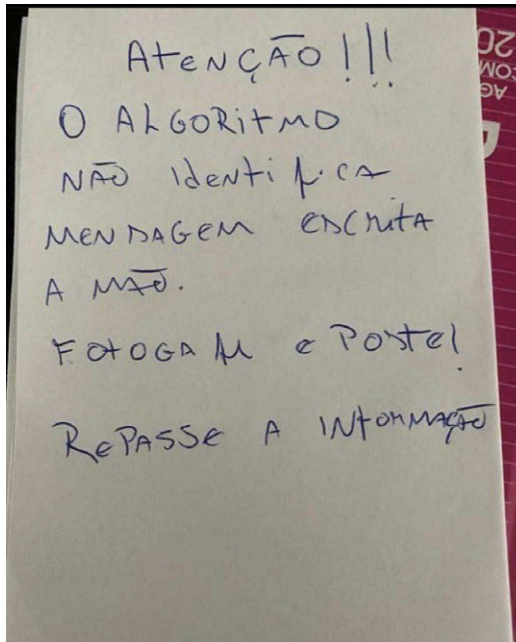 Atenção!!!
O ALGORitMO
NÃO IdentifiCA
MENSAGEM ESCRITA
A MÃO.
FOTOGAfe e Poste!
RePASSE A INFORMAÇÃO
20
COM
AG